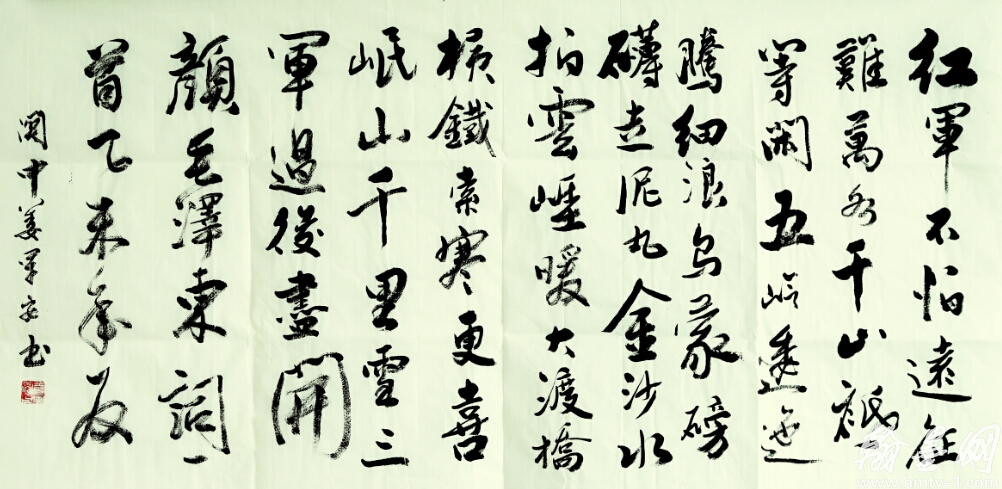 紅軍不怕遠征
難萬水千山祇
等閑五嶺逶迤
騰細浪烏蒙磅
礴走泥丸金沙水
拍雲崖暖大渡橋
横鐵索寒更喜
岷山千里雪三
軍過後盡開
顔毛澤東詞一
首乙未年夏
関中姜安书
翰墨网